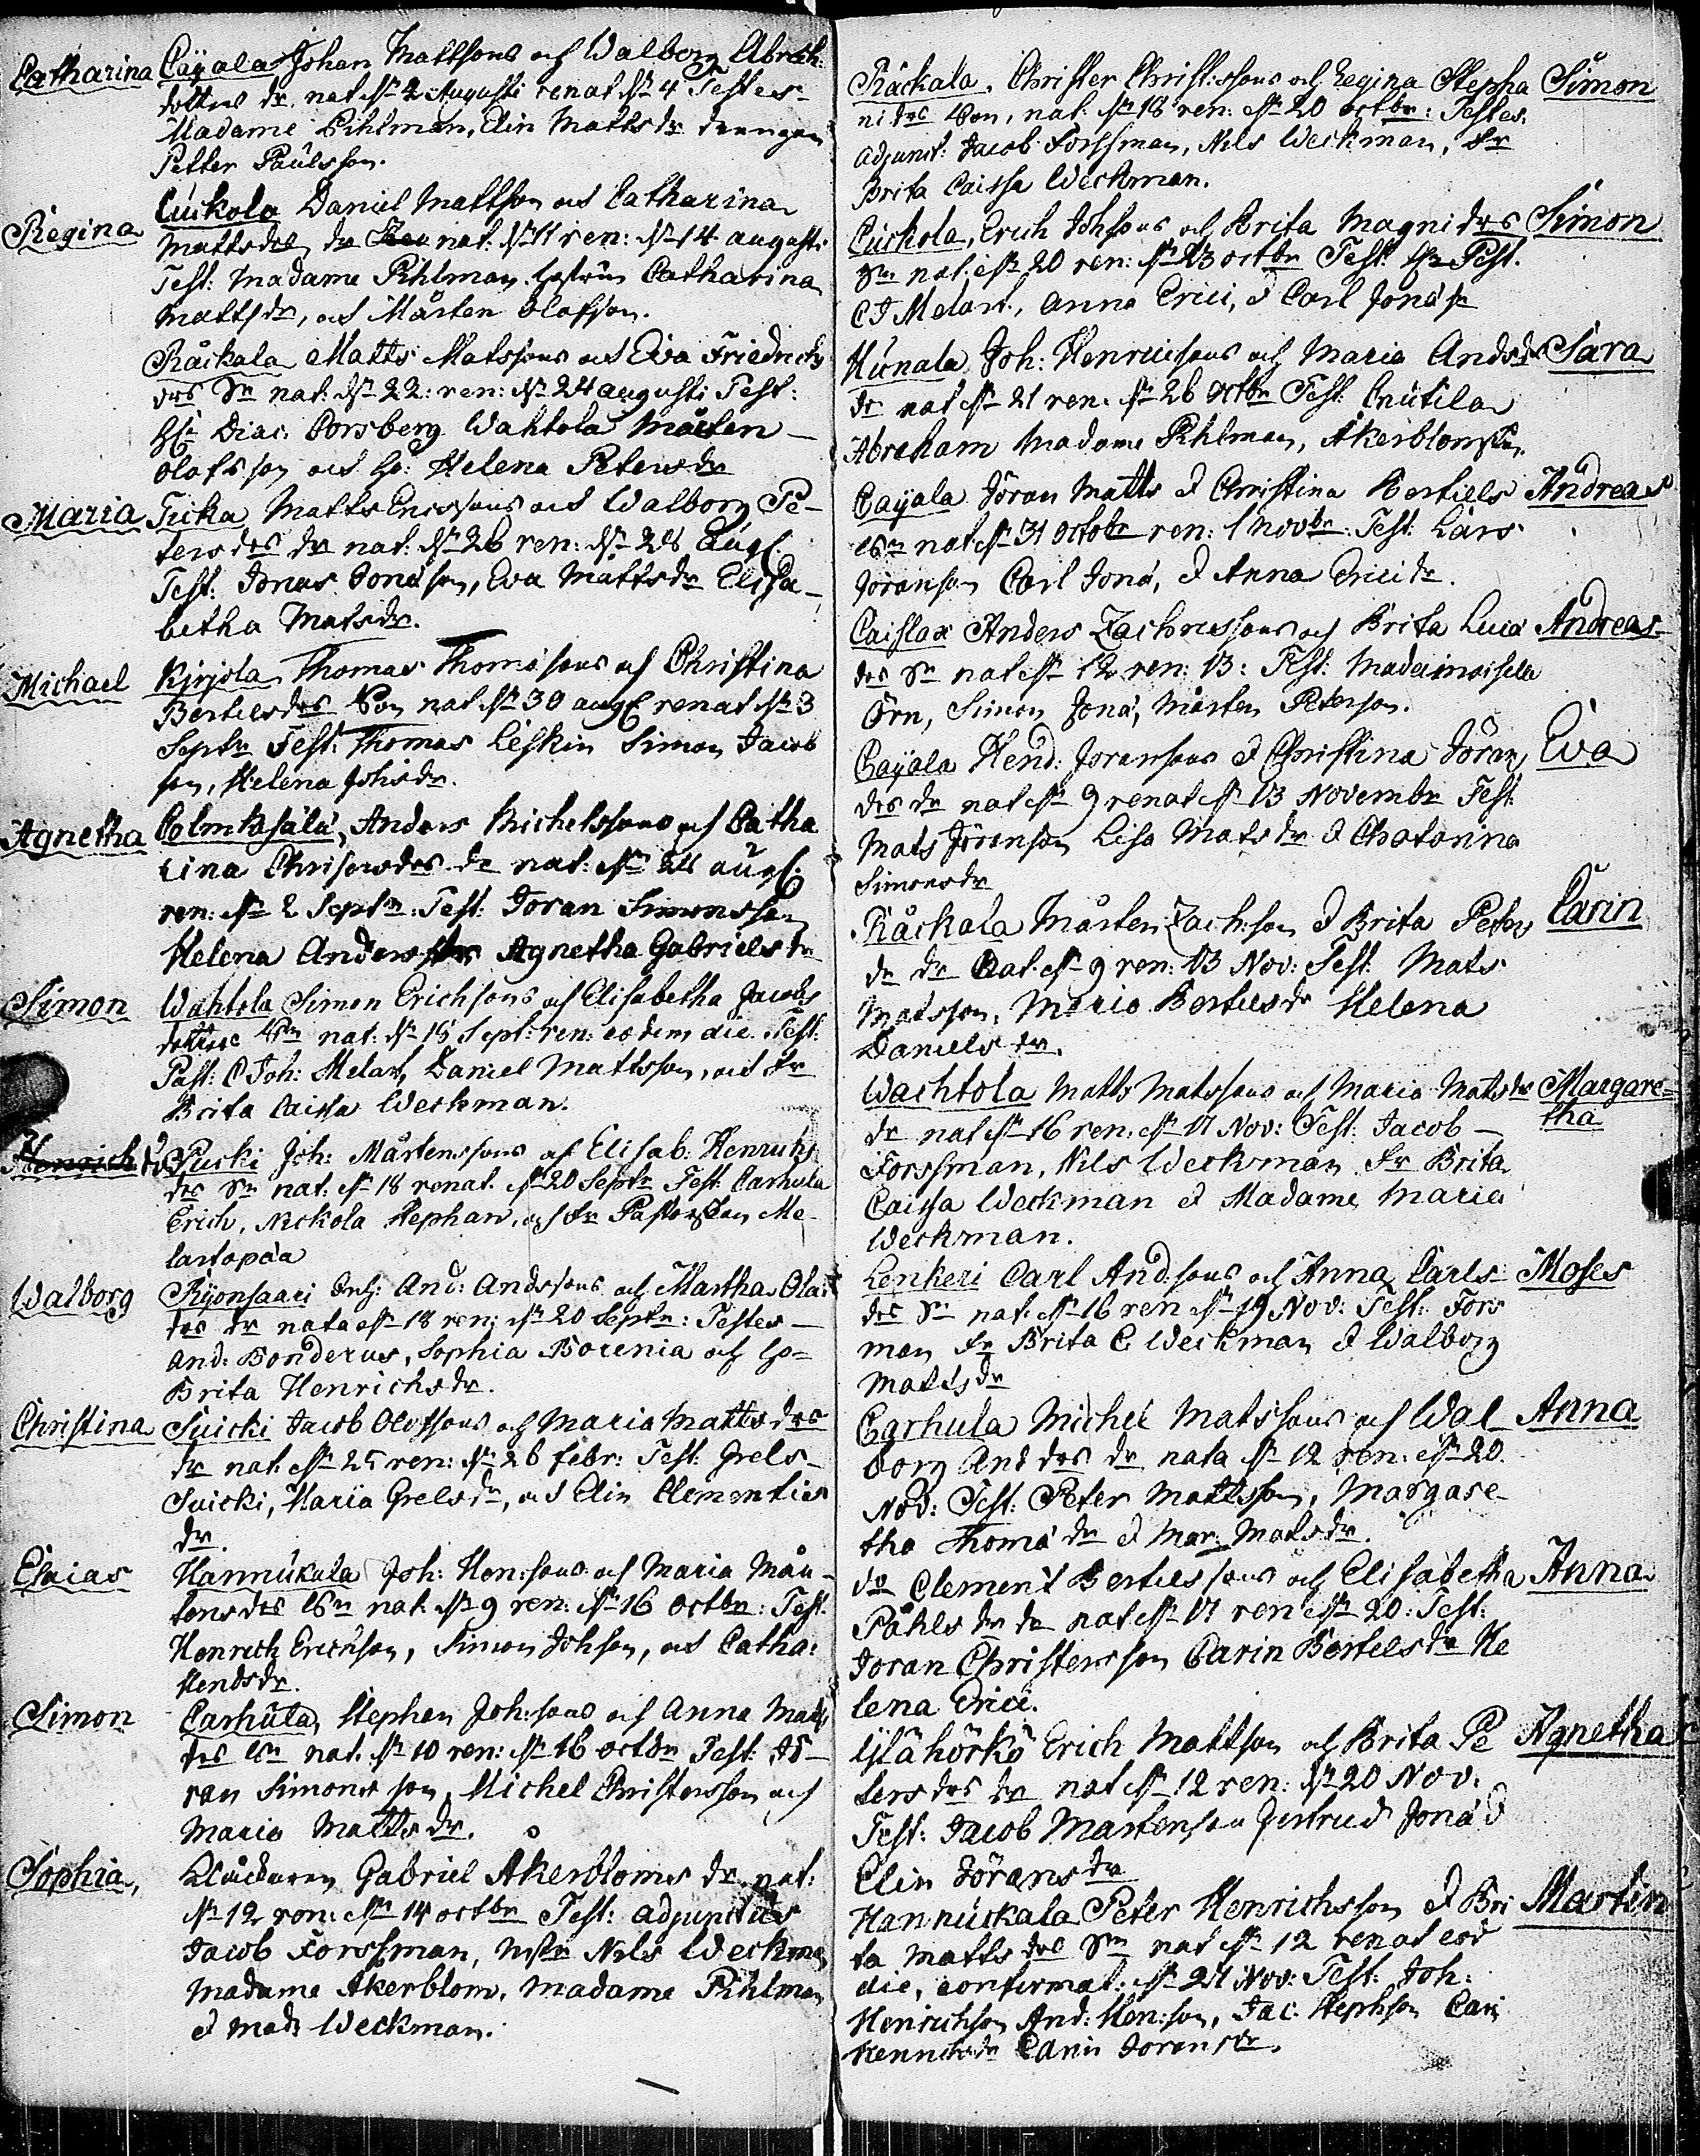 Catharina Cayala Johan Mattsons och Walborg Abrah:
dotters dr nat. dn 2 Augusti renat dn 4 Testes
Madame Pihlman, Elin Matts dr drengen
Petter Paulsson.
Regina Cuckola Daniel Mattson och Catharina
Mattsdrs dr nat. dn 11 ren: dn 14 augusti
Test: Madame Pihlman hustru Catharina
Matts dr, och Mårten Olofson.
Råckala Matts Matssons och Eva Friedrichs
drs Sn nat. dn 22: ren: dn 24 augusti Test:
Diac: Porsberg Wahtola Mårten
Olofsson och h: Helena Petersdr
Maria Tucka Matts Ericssons och Walborg Pe-
ters drs dr nat: dn 26 ren: dn 28 Aug.
Test: Jonas Jonæson, Eva Mattsdr Elisa-
betha Matsdr.
Michael Kirjola Thomas Thomæsons och Christina
Bertilsdrs Son nat dn 30 aug renat dn 3
Septr Test: Thomas Leskin Simon Jacob
son, Helena Johsdr.
Agnetha Colmkasälä, Anders Michelssons och Catha
rina Christersdrs dr nat: dn 28 aug:
ren: dn 2 Septr: Test: Joran Simonsson
Helena Andersdr Agnetha Gabrielsdr
Simon Wahtola Simon Erichsons och Elisabetha Jacobs
dotters Sn nat: dn 18 Sept: ren: eodem die. Test:
Past: C Joh: Melart, Daniel Mattsson, och fr
Brita Caisa Weckman.
Henrich Pucki Joh: Mårtenssons och Elisab: Henrichs
drs Sn nat. dn 18 renat. dn 20 Septr Test: Carhula
Erich, Nickola Stephan, och fr Pastorskan Me-
lartopæa
Walborg Ryönsaari And: Andssons och Martha Ola:
drs dr nata dn 18 ren: dn 20 Septr: Testes
And: Bonderus, Sophia Borenia och h:
Brita Henrichsdr.
Christina Suicki Jacob Olofssons och Maria Mattsdrs
dr nat. dn 25 ren: dn 26 febr: Test: Grels
Suicki, Maria Grelsdr, och Elin Clementis
dr.
Esaias Hannukala Joh: Hen:sons och Maria Mår-
tensdrs Sn nat. dn 9 ren: dn 16 octbr: Test:
Henrich Erichson, Simon Johson, och Catha:
Hendsdr.
Simon Carhula, Stephan Joh:sons och Anna Mats
drs Sn nat. dn 10 ren: dn 16 octbr Test: Jö-
ran Simonsson, Michel Christersson och
Maria Mattsdr.
Sophia, Klåckaren Gabriel Åkerbloms dr nat:
dn 12 ren: dn 14 octbr Test: adjunctus
Jacob Forssman, Nils Weckman
Madame Åkerblom, Madame Pihlman
& Mad: Weckman.
Råckala, Christer Christ:ssons och Regina Stepha Simon
ni drs Son, nat. dn 18 ren: dn 20 octbr: Testes.
adjunct: Jacob Forssman, Nils Weckman, fr
Brita Caissa Weckman.
Cuckola, Erich Johsons och Brita Magni drs Simon
Sn nat. dn 20 ren: dn 23 octbr Test: Past.
C J Melart, Anna Erici, & Carl Jonæ
Hunala Joh: Henricsons och Maria Andsdr Sara
dr nat dn 21 ren. dn 26 octbr Test: Cnutila
Abraham Madame Pihlman, Åkerblomskan.
Cayala Jöran Matts & Christina Bertils Andreas
Sn nat dn 31 octobr ren: 1 Novbr: Test: Lars
Joranson Carl Jonæ, & Anna Ericidr.
Caislax Anders Zachrissons och Brita Lucæ Andreas
drs Sn nat dn 12 ren: 13: Test: Mademoiselle
Örn, Simon Jonæ, Mårten Peterson.
Cayala Hend: Joransons & Christina Jöran Eva
drs dr nat dn 9 renat dn 13 Novembr Test:
Mats Jöranson Lisa Matsdr & Chatarina
Simonsdr
Råckala Mårten Zach:son & Brita Peter Carin
dr dr nat. dn 9 ren: 13 Nov: Test: Mats
Matsson, Maria Bertilsdr Helena
Daniels dr.
Wachtola Matts Matssons och Maria Matsdr Margare-
tha
dr nat dn 16 ren: dn 17 Nov: Test: Jacob
Forssman, Nils Weckman fr Brita
Caissa Weckman & Madame Maria
Weckman.
Lenkeri Carl And:sons och Anna Carls Moses
drs Sn nat. dn 16 ren dn 19 Nov: Test: Fors
man fr Brita C Weckman & Walborg
Mattsdr
Carhula Michel Matssons och Wal Anna
borg And drs dr nata dn 12 ren: dn 20.
Nov: Test: Peter Mattsson, Margare-
tha Thomæ dr & Mar: Matsdr.
do Clement Bertilssons och Elisabetha Anna
Påhls dr dr nat dn 17 ren dn 20: Test:
Joran Christersson Carin Bertelsdr He
lena Erici.
Ylähörkö Erich Mattson och Brita Pe Agnetha
ters drs dr nat dn 12 ren: dn 20 Nov:
Test: Jacob Martenson Gertrud Jonæ &
Elin Jöransdr
Hannuckala Peter Henrichsson & Bri Martin
ta Matts drs Sn nat dn 12 renat eod
die, confirmat: dn 21 Nov: Test: Joh:
Henrichson And: Hen:son, Jac: Stephson Cari
Henrichsdr Carin Joransdr.